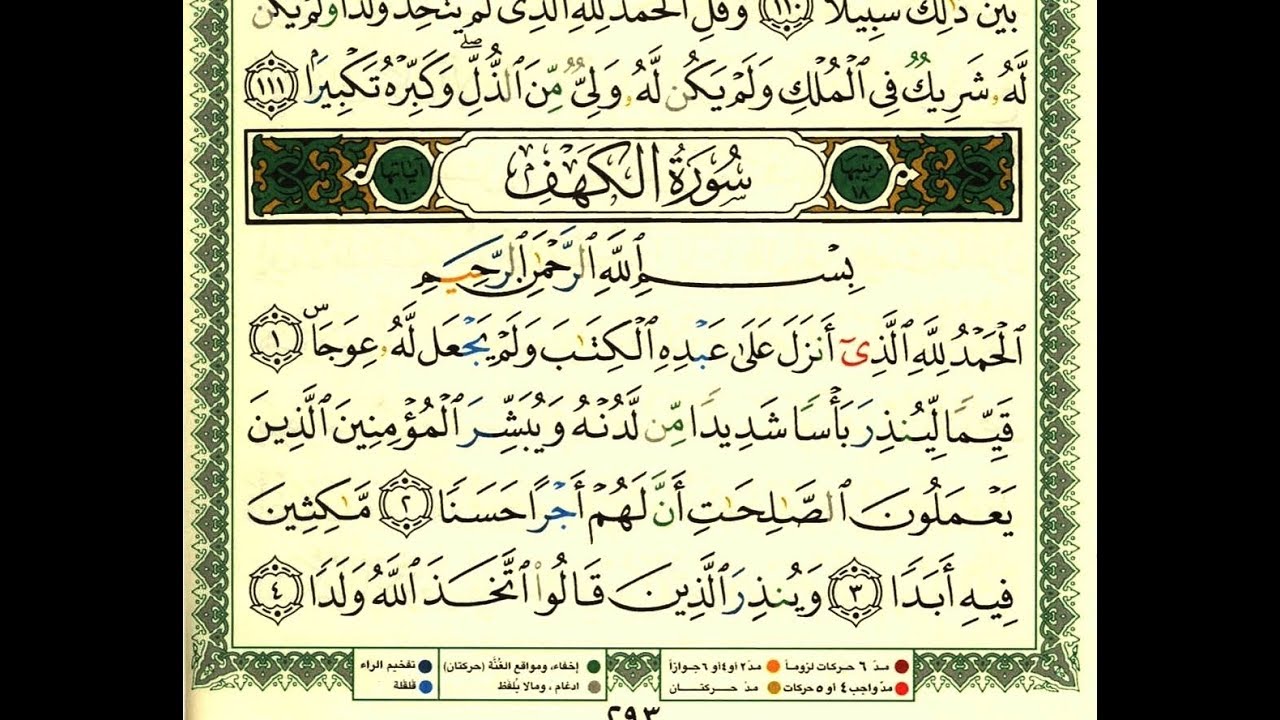 بَيْنَ ذَٰلِكَ سَبِيلًا ١١٠ وَقُلِ ٱلْحَمْدُ لِلَّهِ ٱلَّذِى لَمْ يَتَّخِذْ وَلَدًا وَلَمْ يَكُن
لَّهُۥ شَرِيكٌ فِى ٱلْمُلْكِ وَلَمْ يَكُن لَّهُۥ وَلِىٌّ مِّنَ ٱلذُّلِّ ۖ وَكَبِّرْهُ تَكْبِيرًۢا ١١١
ترتيبها ١٨ سُورَةُ الكَهْف آياتها
بِسْمِ ٱللَّهِ ٱلرَّحْمَٰنِ ٱلرَّحِيمِ
ٱلْحَمْدُ لِلَّهِ ٱلَّذِىٓ أَنزَلَ عَلَىٰ عَبْدِهِ ٱلْكِتَٰبَ وَلَمْ يَجْعَل لَّهُۥ عِوَجَاۜ ١
قَيِّمًا لِّيُنذِرَ بَأْسًا شَدِيدًا مِّن لَّدُنْهُ وَيُبَشِّرَ ٱلْمُؤْمِنِينَ ٱلَّذِينَ
يَعْمَلُونَ ٱلصَّٰلِحَٰتِ أَنَّ لَهُمْ أَجْرًا حَسَنًا ٢ مَّٰكِثِينَ
فِيهِ أَبَدًا ٣ وَيُنذِرَ ٱلَّذِينَ قَالُوا۟ ٱتَّخَذَ ٱللَّهُ وَلَدًا ٤
مدّ ٦ حركات لزوماً مدّ ٢ أو ٤ أو ٦ جوازاً إخفاء، ومواقع الغُنَّة (حركتان) تفخيم الراء
مدّ واجب ٤ أو ٥ حركات مدّ حركتان ادغام، ومالا يُلفَظ قلقلة
٢٩٣